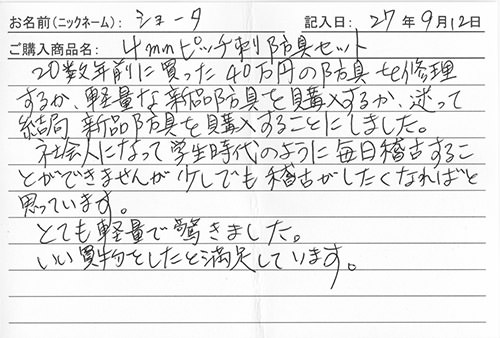 お名前(ニックネーム): ショータ 記入日: 27年9月12日
ご購入商品名: 4mmピッチ刺防具セット
20数年前に買った40万円の防具を修理
するか、軽量な新品防具を購入するか、迷って
結局、新品防具を購入することにしました。
社会人になって学生時代のように毎日稽古するこ
とができませんが少しでも稽古がしたくなればと
思っています。
とても軽量で驚きました。
いい買物をしたと満足しています。